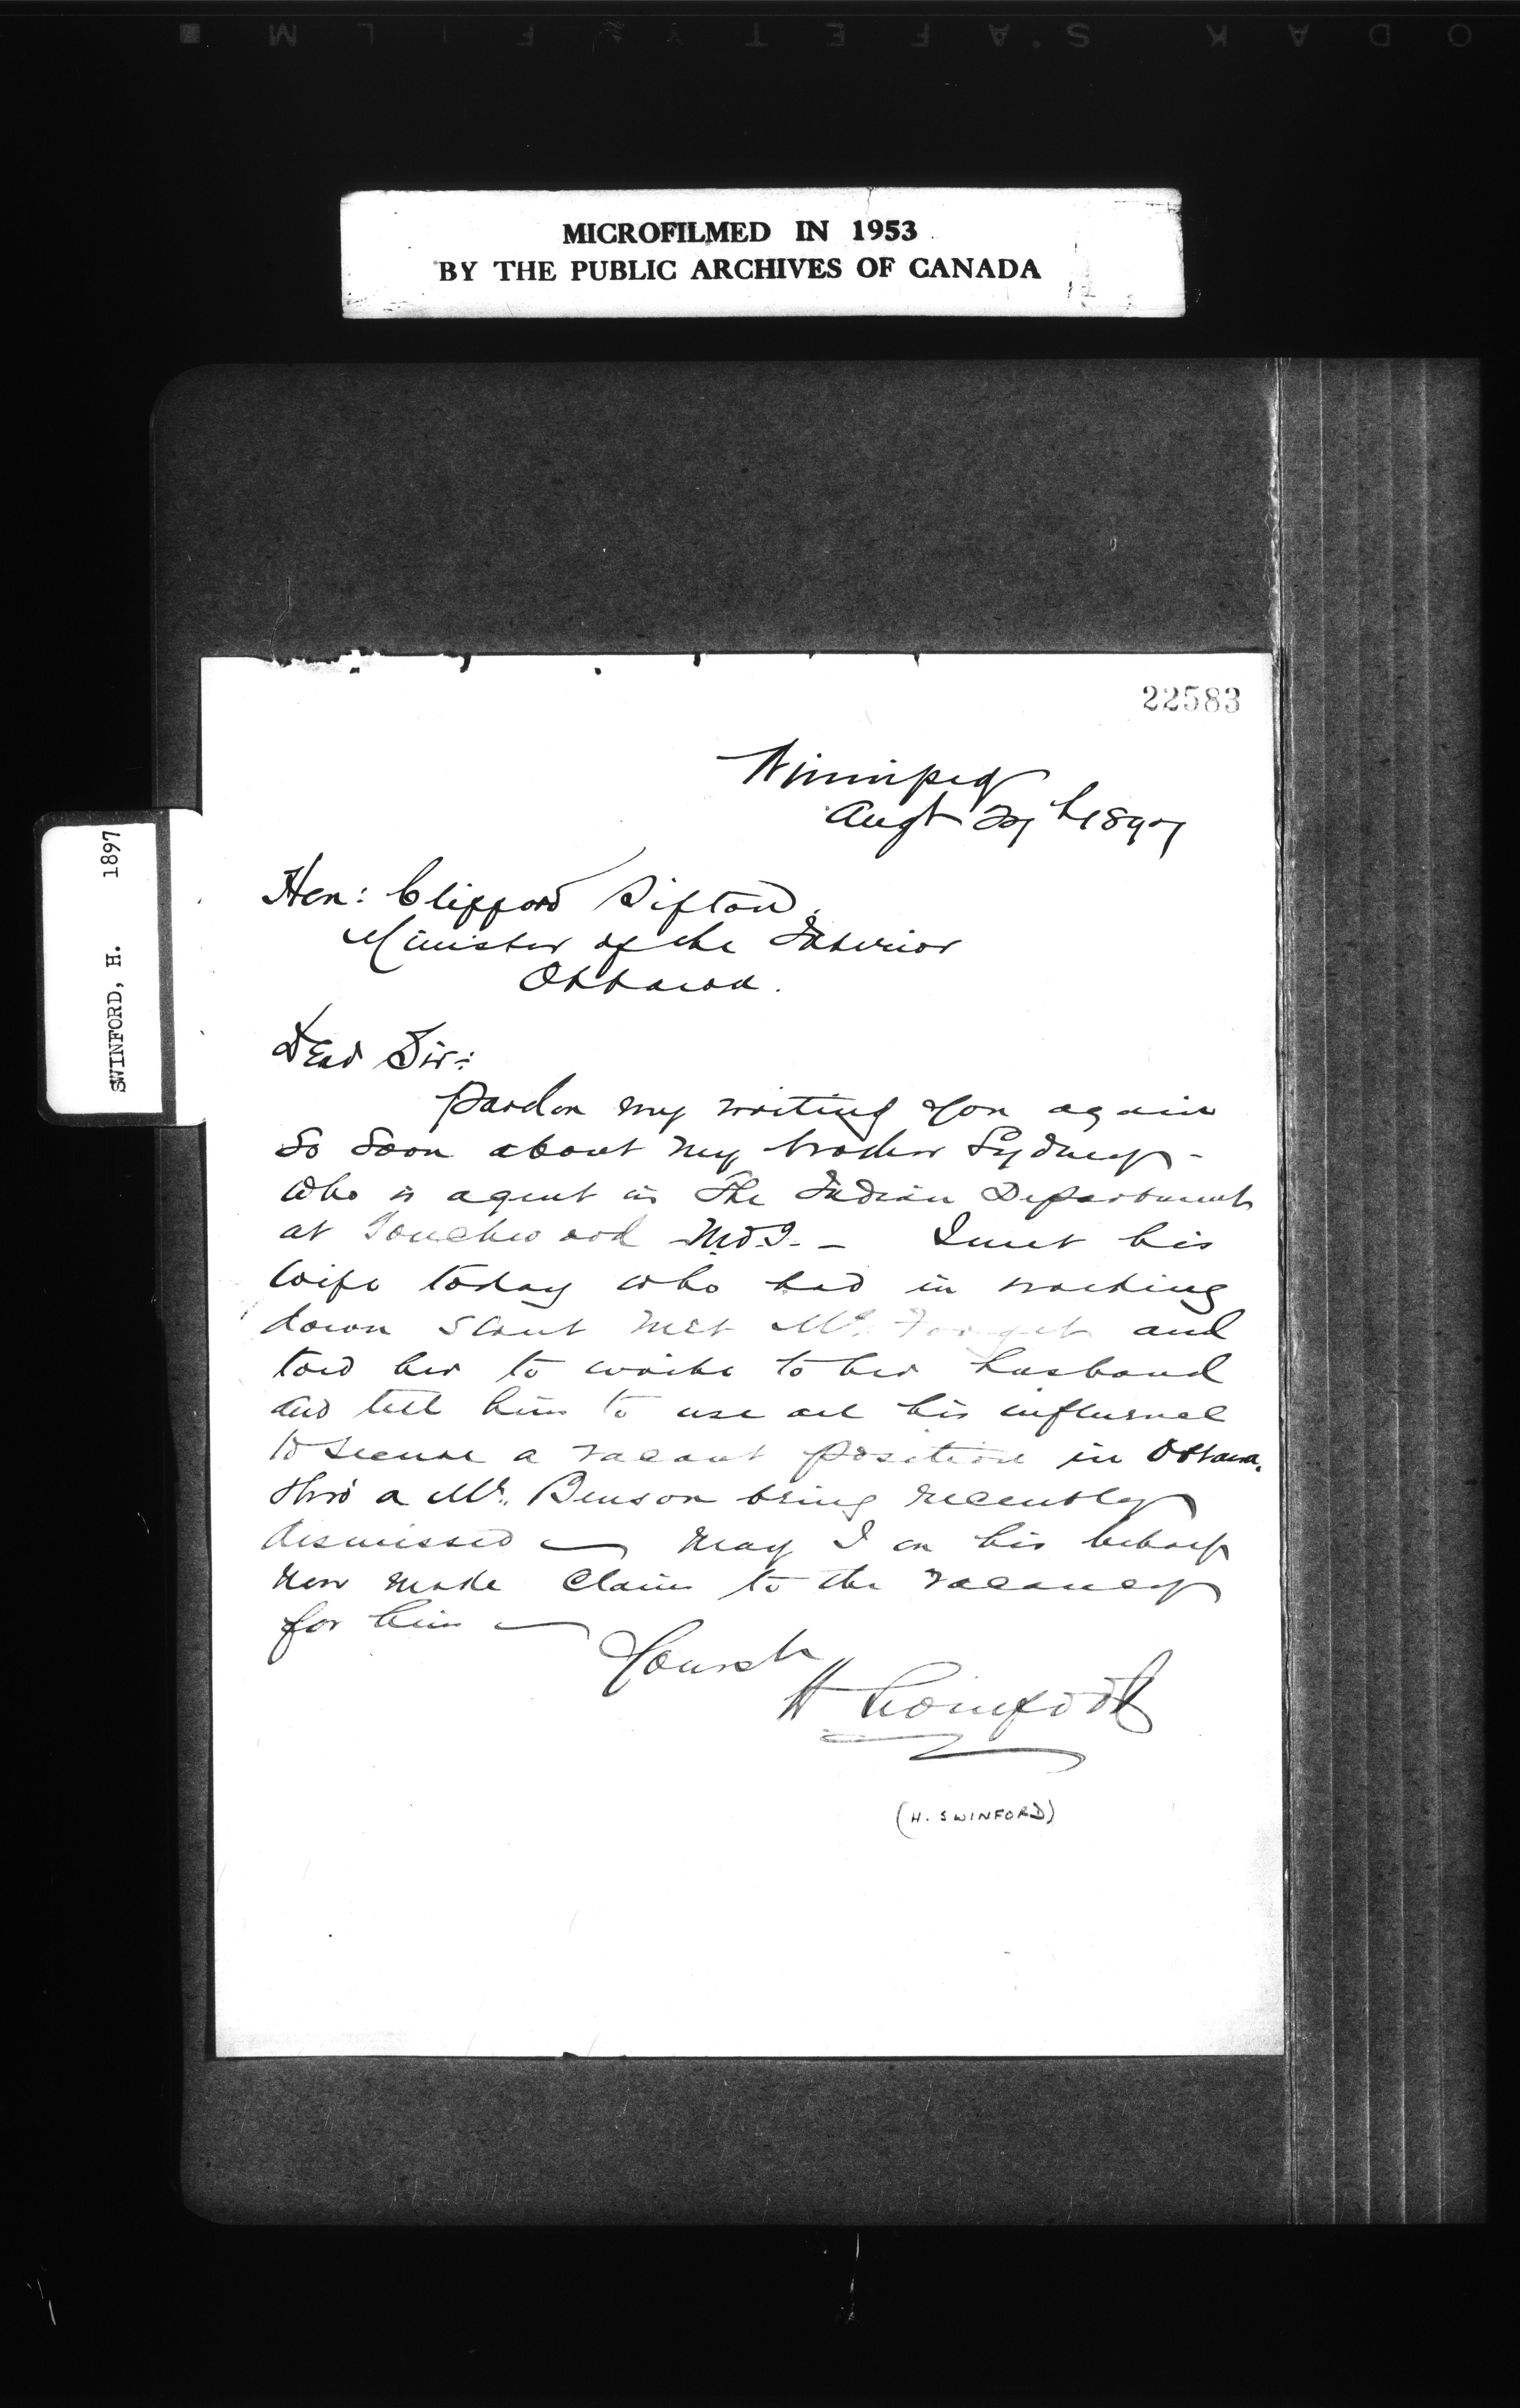 KODAK SAFETY FILM
MICROFILMED IN 1953
BY THE PUBLIC ARCHIVES OF CANADA
SWINFORD, H. 1897
22583
Winnipeg
Augt 1897
Hon: Clifford Sifton
Minister of the Interior
Ottawa.
Dear Sir:
Pardon my writing you again
so soon about my brother Sydney -
who is agent in the Indian Department
at Touchwood - I met his
wife today who had in
down met Mr. Forget and
told her to write to her husband
and tell him to use all his influence
to secure a vacant position in Ottawa.
thro a Mr. Benson being recently
dismissed — May I on his behalf
now make claim to the vacancy
for him —
H Swinford
(H. SWINFORD)